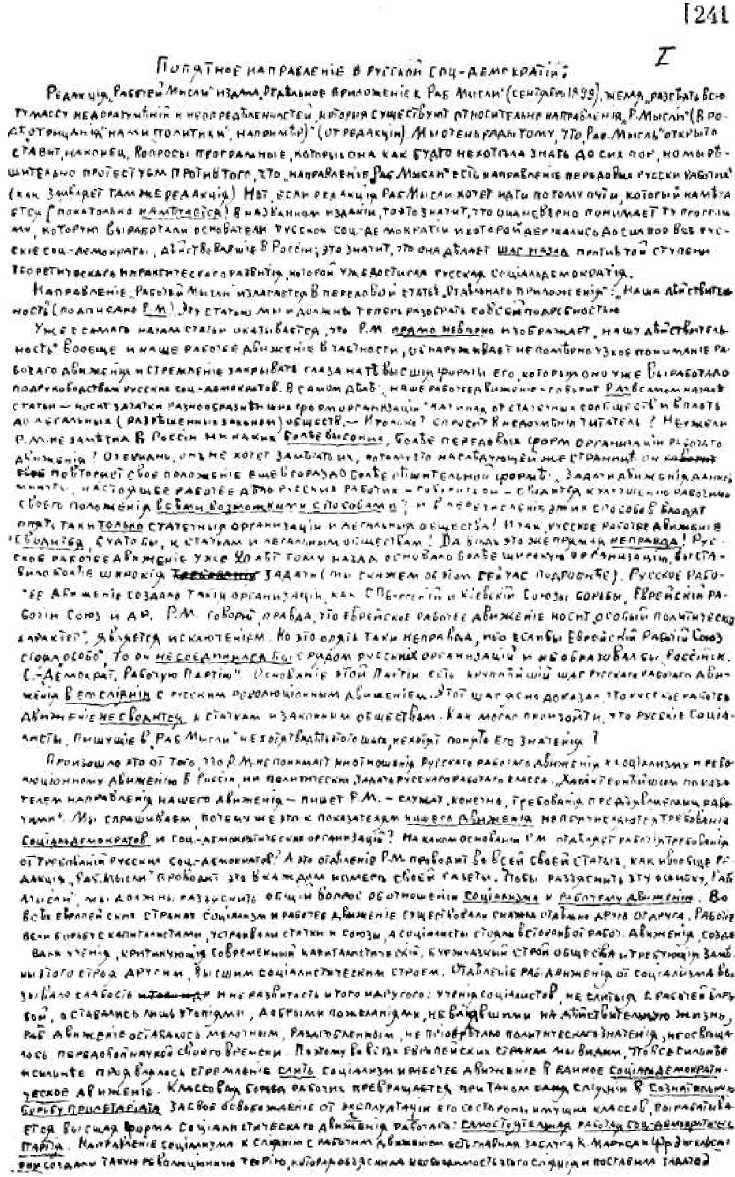 [241
I
Попятное направленiе в русской соц-демократiи.
Редакцiя „Рабочей Мысли" издала „Отдѣльное приложенiе к Раб. Мысли" (сентябрь 1899), желая „разсѣять всю
ту массу недоразумѣнiй и неопредѣленностей, которая существует относительно направленiя „Р. Мысли" (в ро-
дѣ отрицанiя „нами политики", напримѣр)" (от редакцiи). Мы очень рады тому, что „Раб. Мысль" открыто
ставит, наконец, вопросы програмные, которых она как будто не хотѣла знать до сих пор, но мы рѣ-
шительно протестуем против того, что „направленiе „Раб. Мысли" есть направленiе передовых русских рабочих"
(как заявляет там же редакцiя). Нѣт, если редакцiя „Раб. Мысли" хочет идти по тому пути, который намѣча-
ется (пока только намѣчается) в названном изданiи, то это значит, что она невѣрно понимает ту програм-
му, которую выработали основатели русской соц-демократiи и которой держались до сих пор все рус-
скiе соц-демократы, дѣйствовавшiе в Россiи; это значит, что она дѣлает шаг назад против той ступени
теоретическаго и практическаго развитiя, которой уже достигла русская соцiальдемократiя.
Направленiе „Рабочей Мысли" излагается в передовой статьѣ „Отдѣльнаго приложенiя": „Наша дѣйствитель-
ность" (подписано Р.М.). Эту статью мы и должны теперь разобрать со всей подробностью
Уже с самаго начала статьи оказывается, что Р.М. прямо невѣрно изображает „нашу дѣйствитель-
ность" вообще и наше рабочее движенiе в частности, обнаруживает непомѣрно узкое пониманiе ра-
бочаго движенiя и стремленiе закрывать глаза на тѣ высшiя формы его, которыя оно уже выработало
под руководством русских соц-демократов. В самом дѣлѣ, „наше рабочее движенiе — говорит Р.М. в самом началѣ
статьи — носит зачатки разнообразнѣйших форм организацiи" начиная от стачечных сообществ и вплоть
до легальных (разрѣшенных законом) обществ. — И только? спросит в недоумѣнiи читатель? Неужели
Р.М. не замѣтил в Россiи никаких болѣе высоких, болѣе передовых форм организацiи рабочаго
движенiя? Очевидно, он не хочет замѣчать их, потому что на слѣдующей же страницѣ он
повторяет свое положенiе еще в гораздо болѣе рѣшительной формѣ: „Задачи движенiя данной
минуты, настоящее рабочее дѣло русских рабочих — говорит он — сводится к улучшенiю рабочими
своего положенiя всѣми возможными способами", и в перечисленiе этих способов входят
опять таки только стачечныя организацiи и легальныя общества! Итак, русское рабочее движенiе
сводится, будто бы, к стачкам и легальным обществам! Да вѣдь это же прямая неправда! Рус-
ское рабочее движенiе уже 20 лѣт тому назад основывало болѣе широкую организацiю, выста-
вило болѣе широкiя задачи (мы скажем об этом сейчас подробнѣе). Русское рабо-
чее движенiе создало такiя организацiи, как С.-Пбургскiй и Кiевскiй Союзы борьбы, Еврейскiй ра-
бочiй союз и др. Р.М. говорит правда, что еврейское рабочее движенiе носит „особый политическiй
характер", является исключенiем. Но это опять таки неправда, ибо если бы Еврейскiй Рабочiй Союз
стоял „особо", то он не соединился бы с рядом русских организацiй и не образовал бы „Россiйск.
С.-Демократ. Рабочую Партiю". Основанiе этой Партiи есть крупнѣйшiй шаг русскаго рабочаго движ-
женiя в его слiянiи с русским революцiонным движенiем. Этот шаг ясно доказал, что русское рабочее
движенiе не сводится к стачкам и законным обществам. Как могло произойти, что русскiе соцiа-
листы, пишущiе в „Раб. Мысли" не хотят видѣть этого шага, не хотят понять его значенiя?
Произошло это от того, что Р.М. не понимает ни отношенiя русскаго рабочаго движенiя к соцiализму и рево-
люцiонному движенiю в Россiи, ни политических задач русскаго рабочаго класса. „Характернѣйшим показа-
телем направленiя нашего движенiя — пишет Р.М. — служат, конечно, требованiя предъявляемыя рабо-
чими". Мы спрашиваем, почему же это к показателям нашего движенiя не причисляются требованiя
соцiальдемократов и соц-демократических организацiй? На каком основанiи Р.М. отдѣляет рабочiя требованiя
от требованiй русских соц-демократов? А это отдѣленiе Р.М. проводит во всей своей статьѣ, как и вообще ре-
дакцiя „Раб. Мысли" проводит это в каждом номерѣ своей газеты. Чтобы разъяснить эту ошибку „Раб.
Мысли", мы должны разъяснить общiй вопрос об отношенiи соцiализма к рабочему движенiю. Во
всѣх европейских странах соцiализм и рабочее движенiе существовали сначала отдѣльно друг от друга. Рабочiе
вели борьбу с капиталистами, устраивали стачки и союзы, а соцiалисты стояли в сторонѣ от рабоч. движенiя, созда-
вали ученiя, критикующiя современный капиталистическiй, буржуазный строй общества и требующiя замѣ-
ны этого строя другим, высшим соцiалистическим строем. Отдѣленiе раб. движенiя от соцiализма вы-
зывало слабость и неразвитость и того и другого: ученiя соцiалистов, не слитыя с рабочей борь-
бой, оставались лишь утопiями, добрыми пожеланiями, не влiявшими на дѣйствительную жизнь,
раб. движенiе оставалось мелочным, раздробленным, не прiобрѣтало политическаго значенiя, не освѣща-
лось передовой наукой своего времени. Поэтому во всѣх европейских странах мы видим, что все сильнѣе
и сильнѣе проявлялось стремленiе слить соцiализм и рабочее движенiе в единое соцiальдемократи-
ческое движенiе. Классовая борьба рабочих превращается при таком слiянiи в сознательную
борьбу пролетарiата за свое освобожденiе от эксплуатацiи его со стороны имущих классов, вырабатыва-
ется высшая форма соцiалистическаго движенiя рабочаго: самостоятельная рабочая соц-демократическ.
партiя. Направленiе соцiализма к слiянiю с рабочим движенiем есть главная заслуга К. Маркса и Фр. Энгельса:
они создали такую революцiонную теорiю, которая объяснила необходимость этого слiянiя и поставила задачей